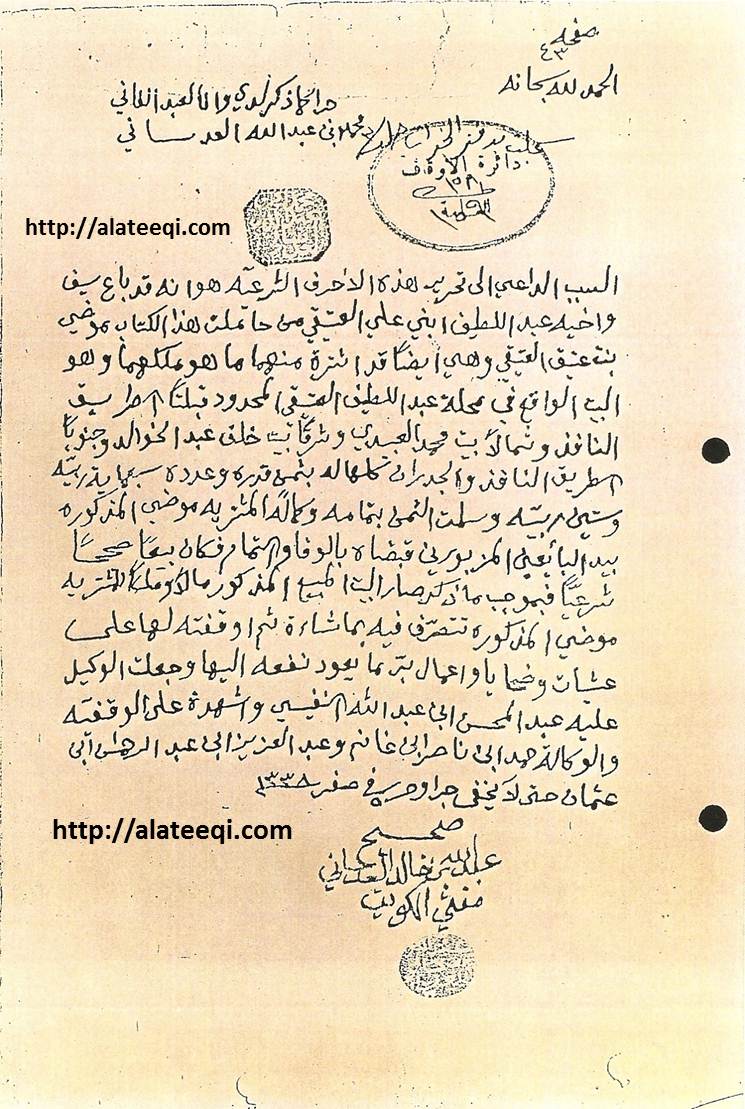 صفحه
٤٣
الحمد لله سبحانه
جرا ما ذكر لدي وانا العبد الفاني
محمد بن عبدالله العدساني
دائرة الأوقاف
http://alateeqi.com
السبب الداعي الى تحرير هذه الأحرف الشرعيه هو انه قد باع سيف
واخيه عبد اللطيف ابني علي العتيقي من حاملت هذا الكتاب موضي
بنت عتيق العتيقي وهي ايضاً قد اشترة منهما ما هو ملكهما وهو
البيت الواقع في محلة عبد اللطيف العتيقي المحدود قبلتاً الطريق
النافذ وشمالاً بيت محمد العبيدي وشرقاً بيت خلف عبد الخوالد وجنوباً
الطريق النافذ والجدران كلها له بثمن قدره وعدده سبعماية ربيه
وستين ربيه وسلمت الثمن بتمامه وكماله المشتريه موضي المذكوره
بيد البائعين المزبورين قبضاه بالوفا والتمام فكان بيعاً صحيحاً
شرعيّاً فبموجب ما ذكر صار البيت المبيع المذكور مالاً وملكاً للمشتريه
موضي المذكوره تتصرّف فيه بما شاءة ثم اوقفته لها على
عشيات وضحايا واعمال برّ مما يعود نفعه اليها وجعلت الوكيل
عليه عبد المحسن ابن عبد الله النفيسي واشهدة على الوقفيه
والوكالة حمد ابن ناصر ابن غانم وعبد العزيز ابن عبد الرحمن ابن
عثمان حتى لا يخفى جرا وحرر في صفر ١٣٣٨
http://alateeqi.com
صحيح
عبدالله بن خالد العدساني
مفتي الكويت